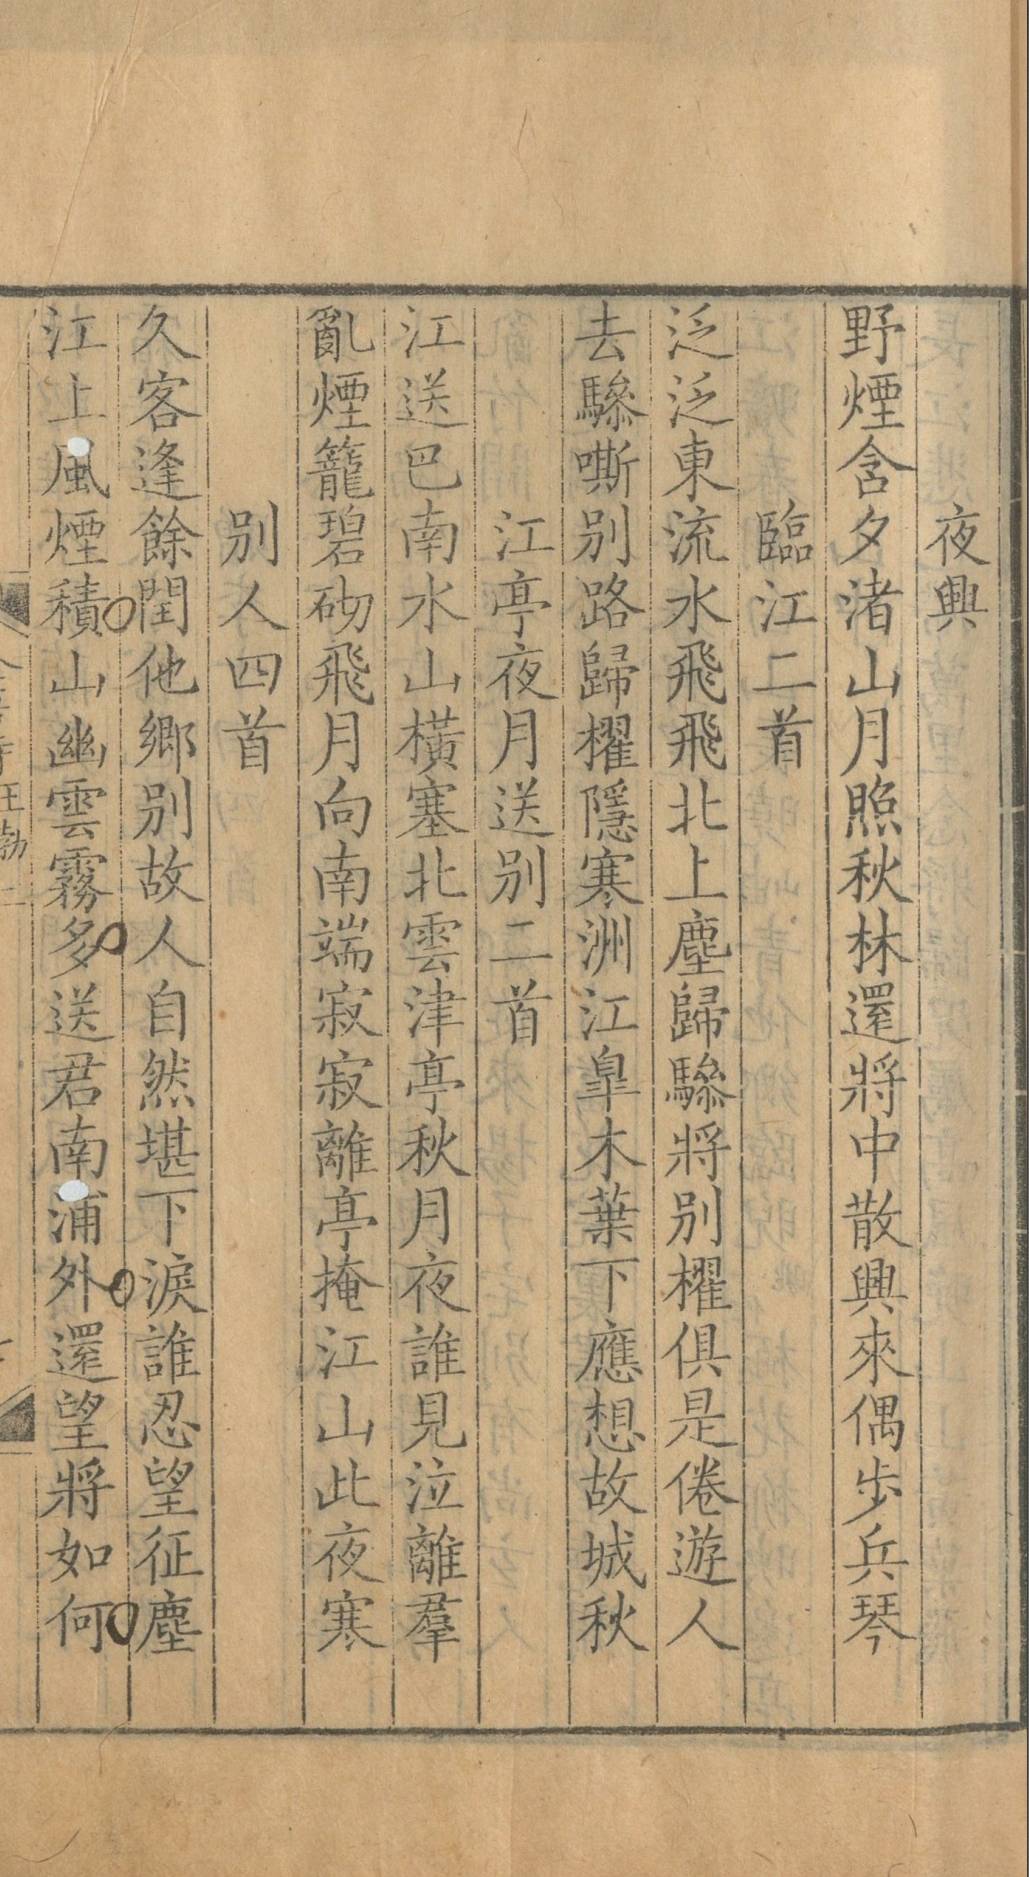 夜興
野煙含夕渚山月照秋林還將中散興來偶步兵琴
臨江二首
泛泛東流水飛飛北上塵歸驂將別櫂俱是倦遊人
去驂嘶別路歸櫂隱寒洲江皐木葉下應想故城秋
江亭夜月送別二首
江送巴南水山橫塞北雲津亭秋月夜誰見泣離羣
亂煙籠碧砌飛月向南端寂寂離亭掩江山此夜寒
別人四首
久客逢餘閏他鄉別故人自然堪下淚誰忍望征塵
江上風煙積山幽雲霧多送君南浦外還望將如何
王勃二